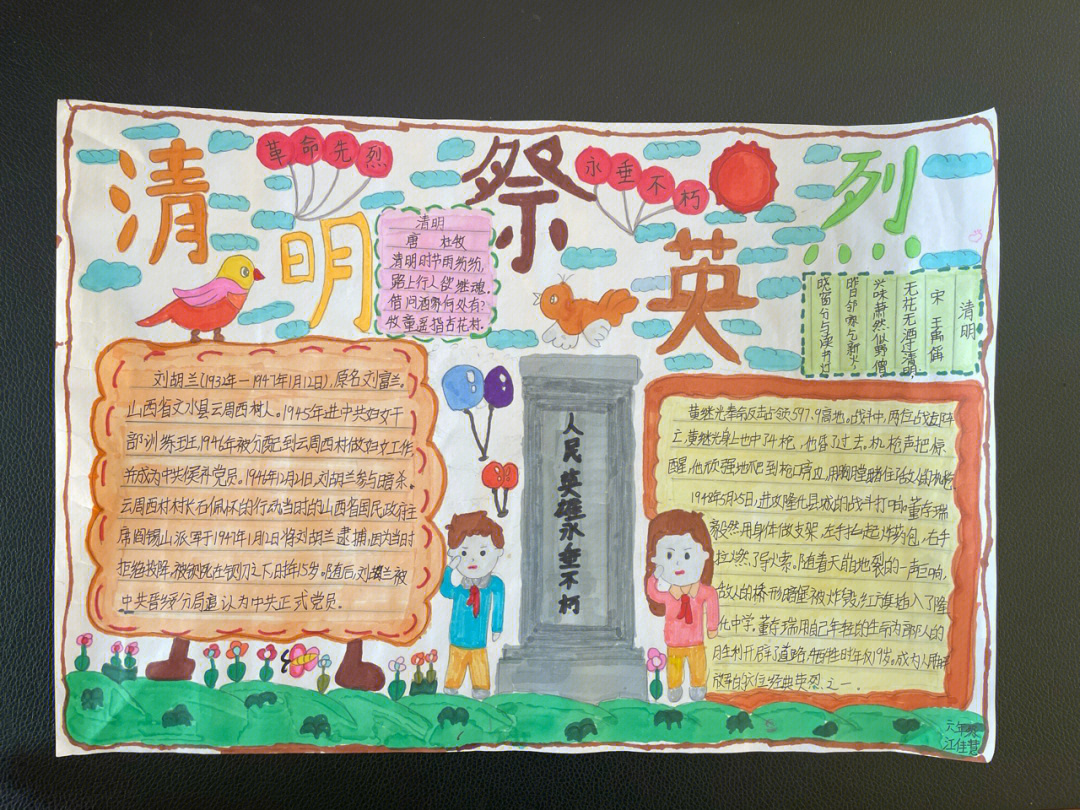 清明祭英烈
革命先烈
永垂不朽
清明
唐 杜牧
清明时节雨纷纷,
路上行人欲
借问酒家何处有?
牧童遥指杏花村.
清明
宋 王禹偁
无花无酒过清明,
兴味萧然似野僧
昨日邻家乞新火
晓窗分与读书灯
刘胡兰(1932年—1947年1月12日),原名刘富兰,
山西省文水县云周西村人。1945年进中共妇女干
部训练班,1946年被分配到云周西村做妇女工作,
并成为中共候补党员。1946年12月21日,刘胡兰参与暗杀
云周西村村长石佩怀的行动当时的山西省国民政府主
席阎锡山派军于1947年1月12日将刘胡兰逮捕,因为当时
拒绝投降,被铡死在铡刀之下,时年15岁。随后,刘胡兰被
中共晋绥分局追认为中共正式党员.
人民英雄永垂不朽
黄继光奉命反击占领597.9高地。战斗中,两位战友阵
亡,黄继光身上也中弹,他昏了过去。机枪声把惊
醒,他顽强地爬到枪口旁边,用胸膛堵住敌人
1948年5月25日,进攻隆化县城的战斗打响。董存瑞
毅然用身体做支架,左手托起炸药包,右手
拉燃了导火索。随着天崩地裂的一声巨响,
敌人的桥形暗堡被炸毁,红旗插入了隆
化中学。董存瑞用自己年轻的生命为部队的
胜利开辟了道路,牺牲时年仅19岁。成为
之一.
六年
江佳